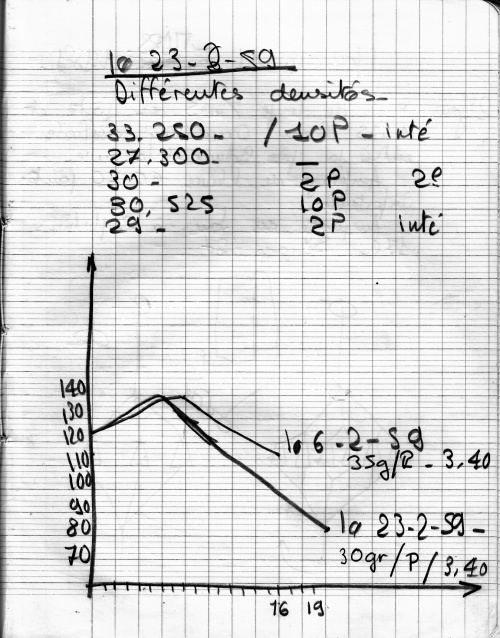 le 23-2-59
Différentes densités
33,250 - / 10P - inté
27,300 -
30 - 2P 2e
30,525 10P
29 - 2P inté
140
130
120
110
100
90
80
70
le 6-2-59
35g/P - 3,40
le 23-2-59 -
30gr/P/3,40
16 19